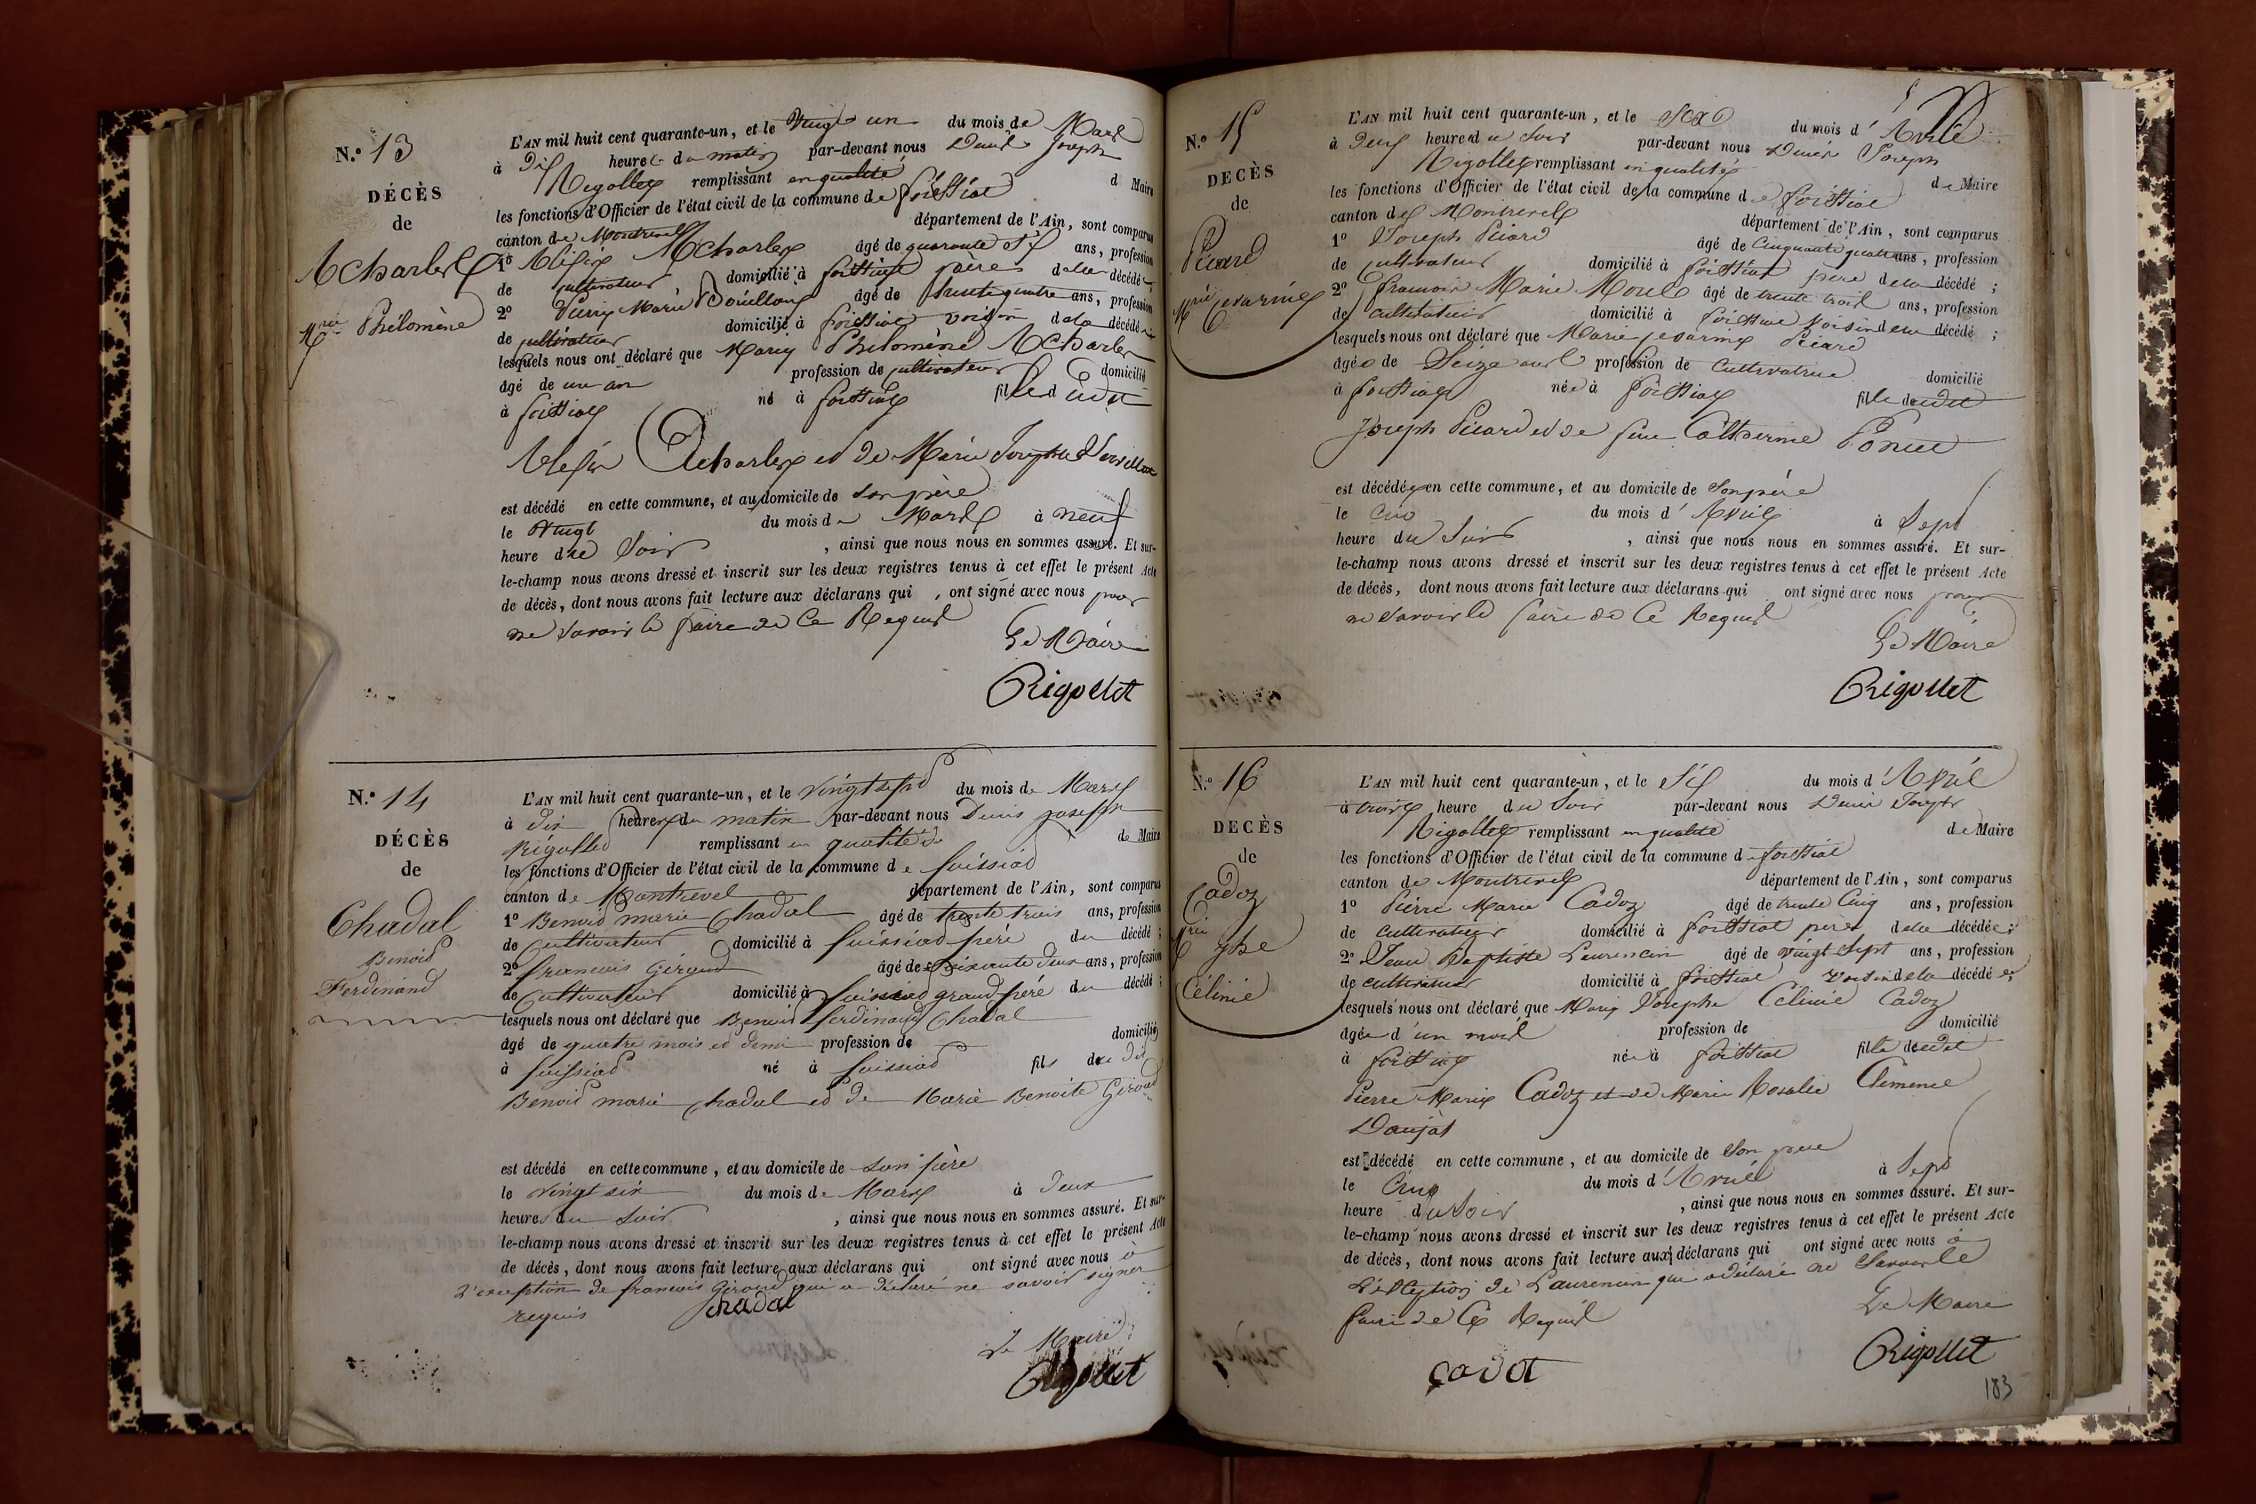 N.° 13
DÉCÈS
de
Acharles
Mrie Philomène
L'AN mil huit cent quarante-un, et le Vingt un du mois de Mars
à Dix heures du matin par-devant nous Denis Joseph
Rigollet remplissant en qualité d Maire
les fonctions d'Officier de l'état civil de la commune de foissiat
canton de Montrevel département de l'Ain, sont comparus
1° Acharles âgé de quarante six ans, profession
de cultivateur domicilié à foissiat père de la décédée
2° Pierre Marie Bouillon âgé de trente quatre ans, profession
de cultivateur domicilié à foissiat voisin de la décédée
lesquels nous ont déclaré que Marie Philomène Acharles
âgé de un an profession de cultivateur domicilié
à foissiat né à foissiat fille dudit
Acharles et de Marie Josephte
est décédé en cette commune, et au domicile de son père
le Vingt du mois de Mars à neuf
heure du Soir , ainsi que nous nous en sommes assuré. Et sur-
le-champ nous avons dressé et inscrit sur les deux registres tenus à cet effet le présent Acte
de décès, dont nous avons fait lecture aux déclarans qui , ont signé avec nous pour
ne savoir le faire de ce Requis
Le Maire
Rigollet
N.° 14
DÉCÈS
de
Chadal
Benoid
Ferdinand
L'AN mil huit cent quarante-un, et le vingt sept du mois de Mars
à dix heures du matin par-devant nous Denis joseph
Rigollet remplissant en qualité de Maire
les fonctions d'Officier de l'état civil de la commune de foissiad
canton de Montrevel département de l'Ain, sont comparus
1° Benoid marie Chadal âgé de trente trois ans, profession
de Cultivateur domicilié à foissiad père du décédé ;
2° francois Giroud âgé de soixante deux ans, profession
de Cultivateur domicilié à foissiad grand père du décédé ;
lesquels nous ont déclaré que Benoid ferdinand Chadal
âgé de quatre mois et demi profession de domicilié
à foissiad né à foissiad fils de dit
Benoid marie Chadal et de Marie Benoite Giroud
est décédé en cette commune, et au domicile de son père
le vingt six du mois de Mars à deux
heures du soir , ainsi que nous nous en sommes assuré. Et sur-
le-champ nous avons dressé et inscrit sur les deux registres tenus à cet effet le présent Acte
de décès, dont nous avons fait lecture aux déclarans qui ont signé avec nous à
l'exception de francois Giroud qui a déclaré ne savoir signer
requis chadal
Le Maire
Rigollet
N.° 15
DÉCÈS
de
Picard
Mrie Cesarine
L'AN mil huit cent quarante-un, et le Six du mois d' Avril
à Deux heure du Soir par-devant nous Denis Joseph
Rigollet remplissant en qualité de Maire
les fonctions d'Officier de l'état civil de la commune de foissiat
canton de Montrevel département de l'Ain, sont comparus
1° Joseph Picard âgé de Cinquante quatre ans, profession
de cultivateur domicilié à foissiat père de la décédé ;
2° francois Marie Morel âgé de trente trois ans, profession
de cultivateur domicilié à foissiat voisin de la décédé ;
lesquels nous ont déclaré que Marie Cesarine Picard
âgée de Seize ans profession de Cultivatrice domicilié
à foissiat née à foissiat fille dudit
Joseph Picard et de feue Catherine Poncet
est décédée en cette commune, et au domicile de son père
le Cinq du mois d' Avril à Sept
heure du Soir , ainsi que nous nous en sommes assuré. Et sur-
le-champ nous avons dressé et inscrit sur les deux registres tenus à cet effet le présent Acte
de décès, dont nous avons fait lecture aux déclarans qui ont signé avec nous pour
ne savoir le faire de Ce Requis
Le Maire
Rigollet
N.° 16
DÉCÈS
de
Cadoz
Mrie Jphe
Célinie
L'AN mil huit cent quarante-un, et le Six du mois d'Avril
à trois heure du Soir par-devant nous Denis Joseph
Rigollet remplissant en qualité de Maire
les fonctions d'Officier de l'état civil de la commune de foissiat
canton de Montrevel département de l'Ain, sont comparus
1° Pierre Marie Cadoz âgé de trente Cinq ans, profession
de cultivateur domicilié à foissiat père de la décédée ;
2° Jean Baptiste Laurencin âgé de vingt Sept ans, profession
de cultivateur domicilié à foissiat voisin de la décédée ;
lesquels nous ont déclaré que Marie Josephe Célinie Cadoz
âgée d'un mois profession de domicilié
à foissiat née à foissiat fille dudit
Pierre Marie Cadoz et de Marie Rosalie Clemence
Daujat
est décédé en cette commune, et au domicile de Son père
le Cinq du mois d'Avril à Sept
heure du Soir , ainsi que nous nous en sommes assuré. Et sur-
le-champ nous avons dressé et inscrit sur les deux registres tenus à cet effet le présent Acte
de décès, dont nous avons fait lecture aux déclarans qui ont signé avec nous à
L'exception de Laurencin qui a déclaré ne Savoir le
faire de Ce Requis
Le Maire
cadot
Rigollet
183